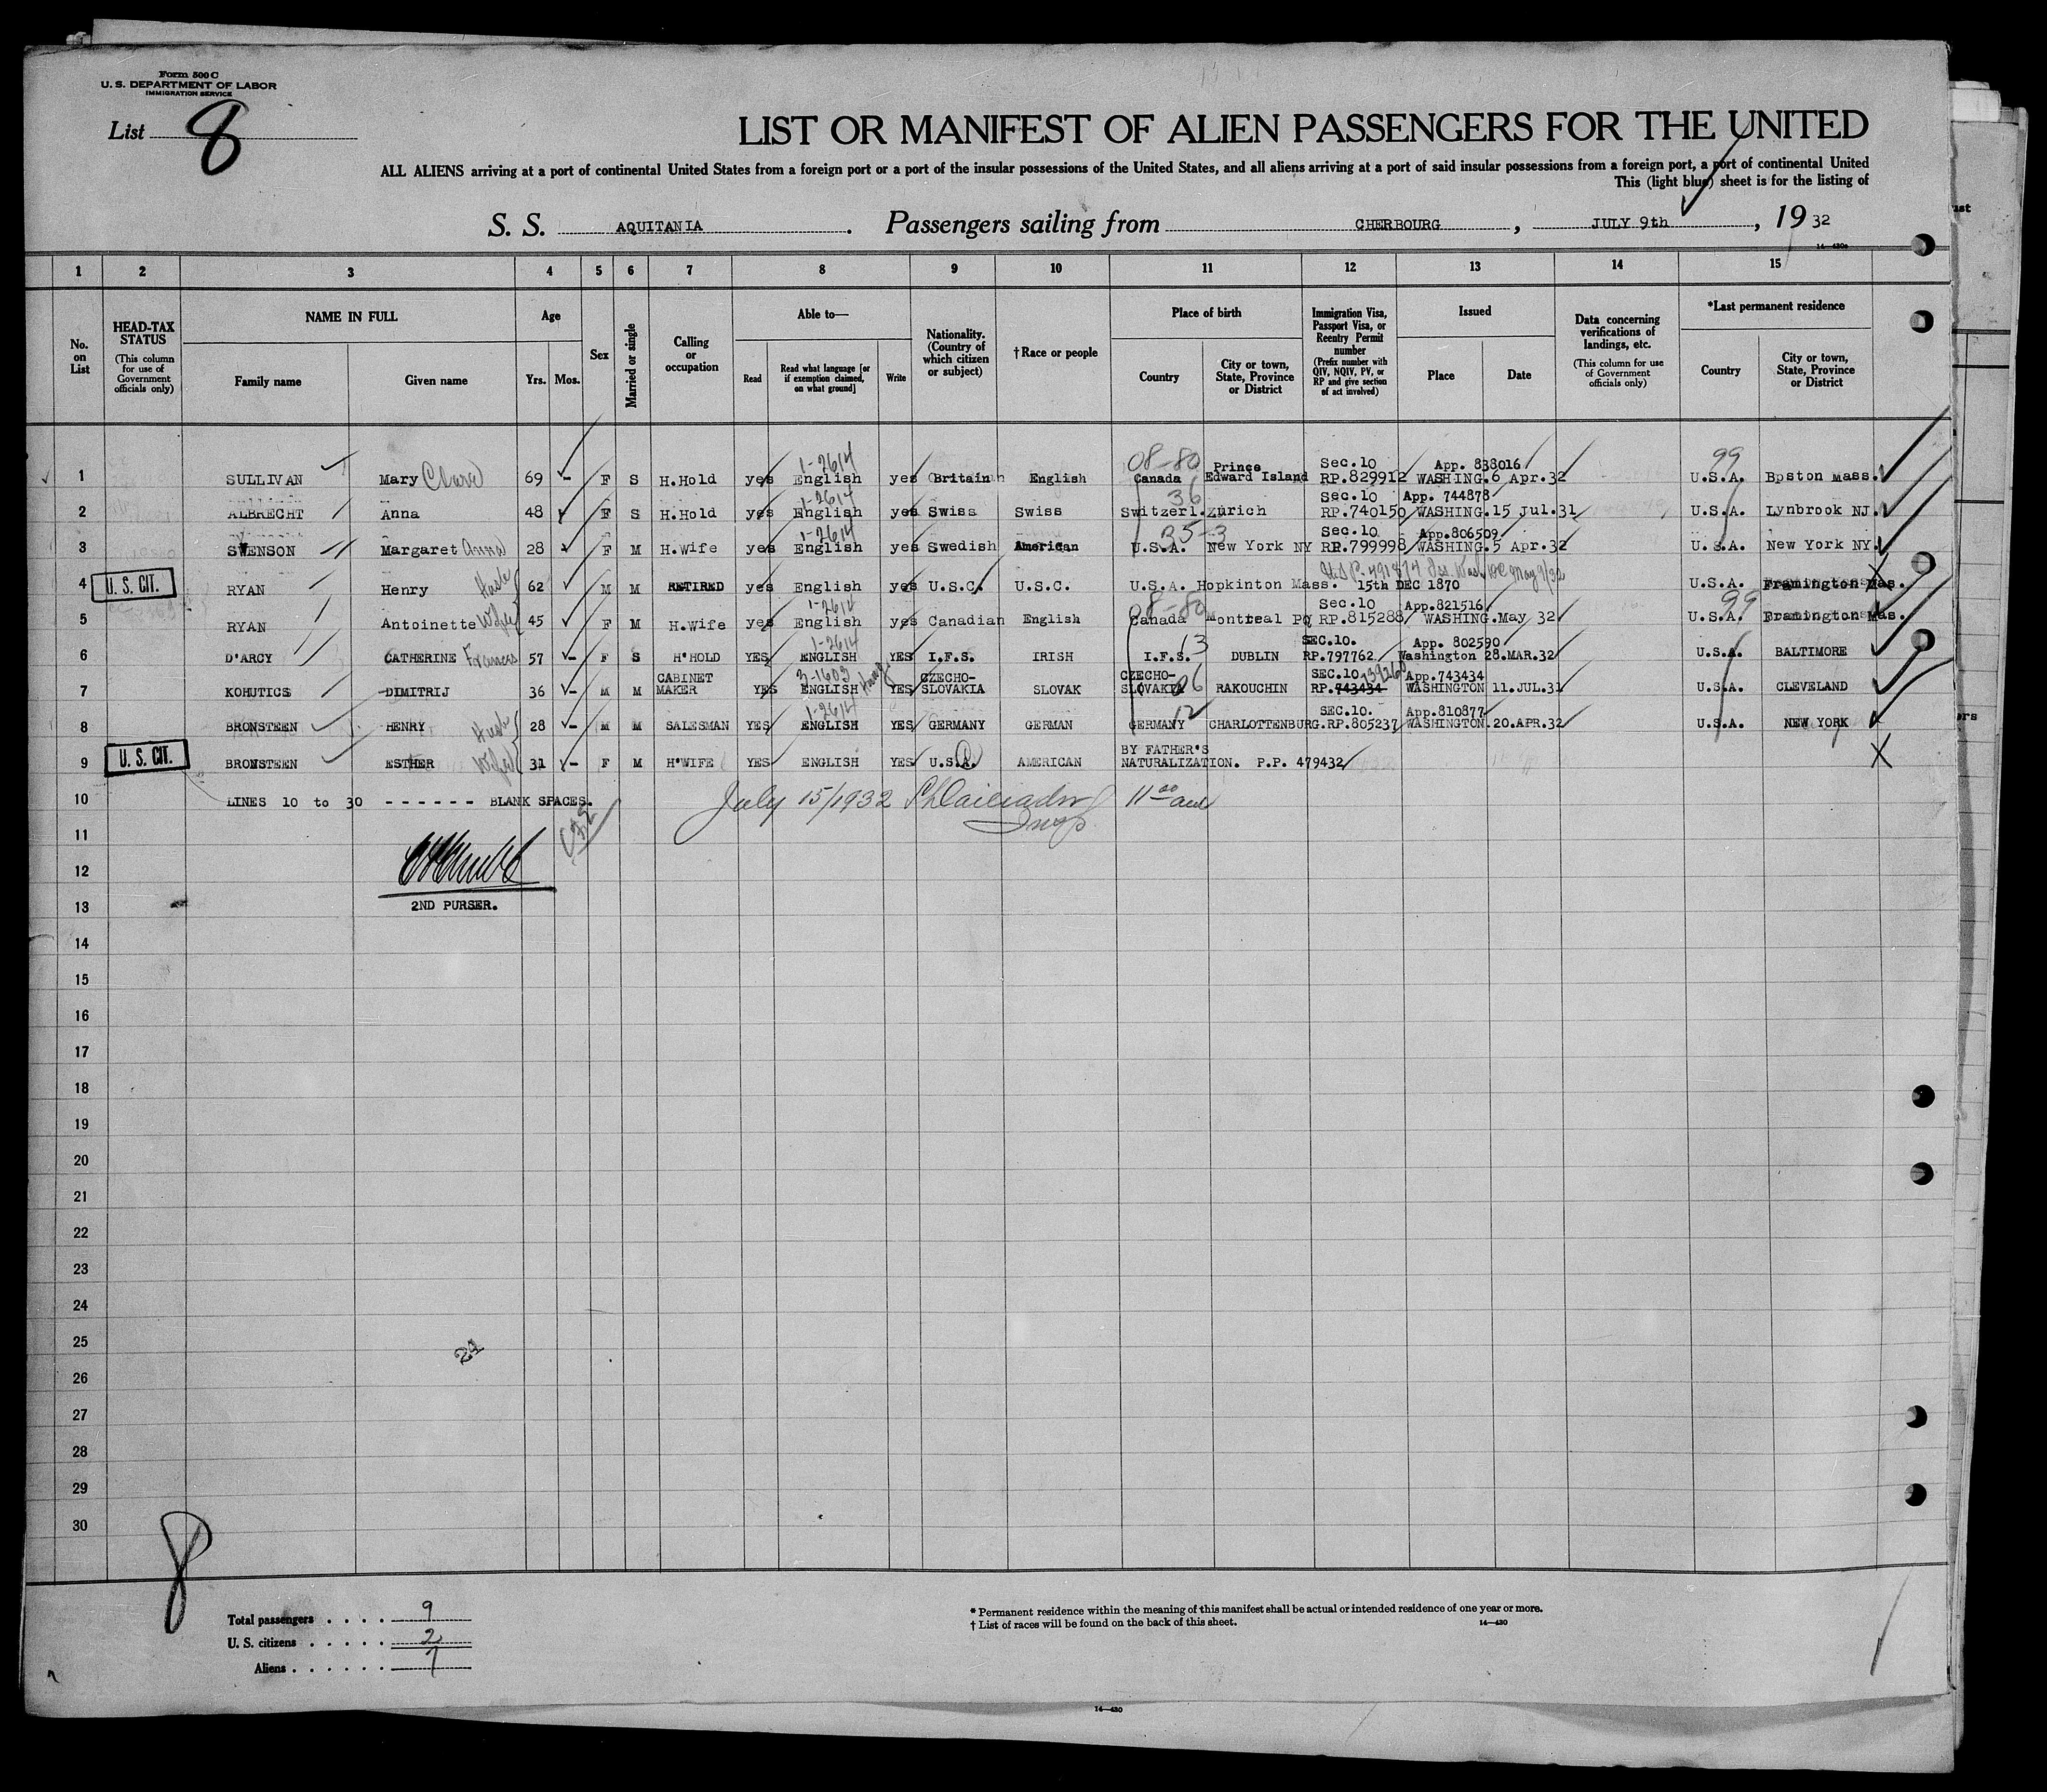 Form 500 C
U. S. DEPARTMENT OF LABOR
IMMIGRATION SERVICE
List 8
LIST OR MANIFEST OF ALIEN PASSENGERS FOR THE UNITED
ALL ALIENS arriving at a port of continental United States from a foreign port or a port of the insular possessions of the United States, and all aliens arriving at a port of said insular possessions from a foreign port, a port of continental United
This (light blue) sheet is for the listing of
S. S. AQUITANIA. Passengers sailing from CHERBOURG, JULY 9th, 1932
14—430a
1 2 3 4 5 6 7 8 9 10 11 12 13 14 15
No. on List
HEAD-TAX STATUS
(This column for use of Government officials only)
NAME IN FULL
Family name Given name
Age
Yrs. Mos.
Sex
Married or single
Calling or occupation
Able to—
Read Read what language [or if exemption claimed, on what ground] Write
Nationality. (Country of which citizen or subject)
†Race or people
Place of birth
Country City or town, State, Province or District
Immigration Visa, Passport Visa, or Reentry Permit number
(Prefix number with QIV, NQIV, PV, or RP and give section of act involved)
Issued
Place Date
Data concerning verifications of landings, etc.
(This column for use of Government officials only)
*Last permanent residence
Country City or town, State, Province or District
1-2614 08-80 Prince Sec.10 App. 838016 99
1 SULLIVAN Mary Clare 69 - F S H.Hold yes English yes Britain English Canada Edward Island RP.829912 WASHING.6 Apr.32 U.S.A. Boston Mass.
1-2614 36 Sec.10 App. 744878
2 ALBRECHT Anna 48 F S H.Hold yes English yes Swiss Swiss Switzerl. Zurich RP.740150 WASHING.15 Jul.31 U.S.A. Lynbrook NJ.
1-2614 35-3 Sec.10 App.806509
3 SWENSON Margaret Anna 28 F M H.Wife yes English yes Swedish American U.S.A. New York NY RP.799998 WASHING.5 Apr.32 U.S.A. New York NY.
U. S. CIT.
4 RYAN Henry Husb 62 M M RETIRED yes English yes U.S.C. U.S.C. U.S.A. Hopkinton Mass. 15th DEC 1870 U.S.A. Framington Mas.
1-2614 08-80 Sec.10 App.821516 99
5 RYAN Antoinette Wife 45 F M H.Wife yes English yes Canadian English Canada Montreal PQ RP.815288 WASHING.May 32 U.S.A. Framington Mas.
1-2614 13 SEC.10. App. 802590
6 D'ARCY CATHERINE Frances 57 - F S H'HOLD YES ENGLISH YES I.F.S. IRISH I.F.S. DUBLIN RP.797762 Washington 28.MAR.32 U.S.A. BALTIMORE
CABINET 3-1603 CZECHO- CZECHO- 06 SEC.10 739260 App.743434
7 KOHUTICS DIMITRIJ 36 - M M MAKER YES ENGLISH YES SLOVAKIA SLOVAK SLOVAKIA RAKOUCHIN RP.743434 WASHINGTON 11.JUL.31 U.S.A. CLEVELAND
1-2614 12 SEC.10. App.810877
8 BRONSTEEN HENRY Husb 28 - M M SALESMAN YES ENGLISH YES GERMANY GERMAN GERMANY CHARLOTTENBURG. RP.805237 WASHINGTON.20.APR.32 U.S.A. NEW YORK
U. S. CIT. BY FATHER'S
9 BRONSTEEN ESTHER Wife 31 - F M H'WIFE YES ENGLISH YES U.S.A. AMERICAN NATURALIZATION. P.P. 479432
10 LINES 10 to 30 ------ BLANK SPACES. July 15/1932 11 00 am
Insp
11
12
2ND PURSER.
13
14
15
16
17
18
19
20
21
22
23
24
25
24
26
27
28
29
30
8
Total passengers . . . . 9
U. S. citizens . . . . . 2
Aliens . . . . . . 7
* Permanent residence within the meaning of this manifest shall be actual or intended residence of one year or more.
† List of races will be found on the back of this sheet. 14—430
14—430